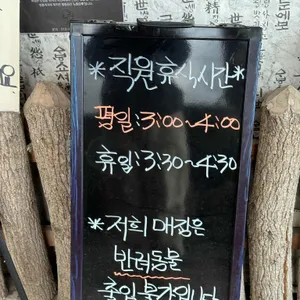 *직원휴식시간*
평일:3:00~4:00
휴일:3:30~4:30
*저희 매장은
반려동물
출입 불가입니다